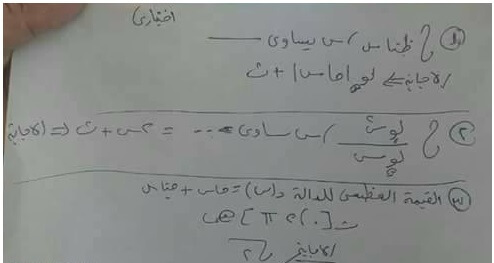 اختبارى
① ∫ ظتاس ءس يساوى ــــــ
الاجابة ⇐ لو |حاس| + ث
② ∫ لوس² / لوس ءس ساوى ... = ٢س + ث ⇐ الاجابة
③ القيمة العظمى للدالة د(س) = حاس + حتاس
س ∈ ]٠، π ٢[
الاجابة √٢